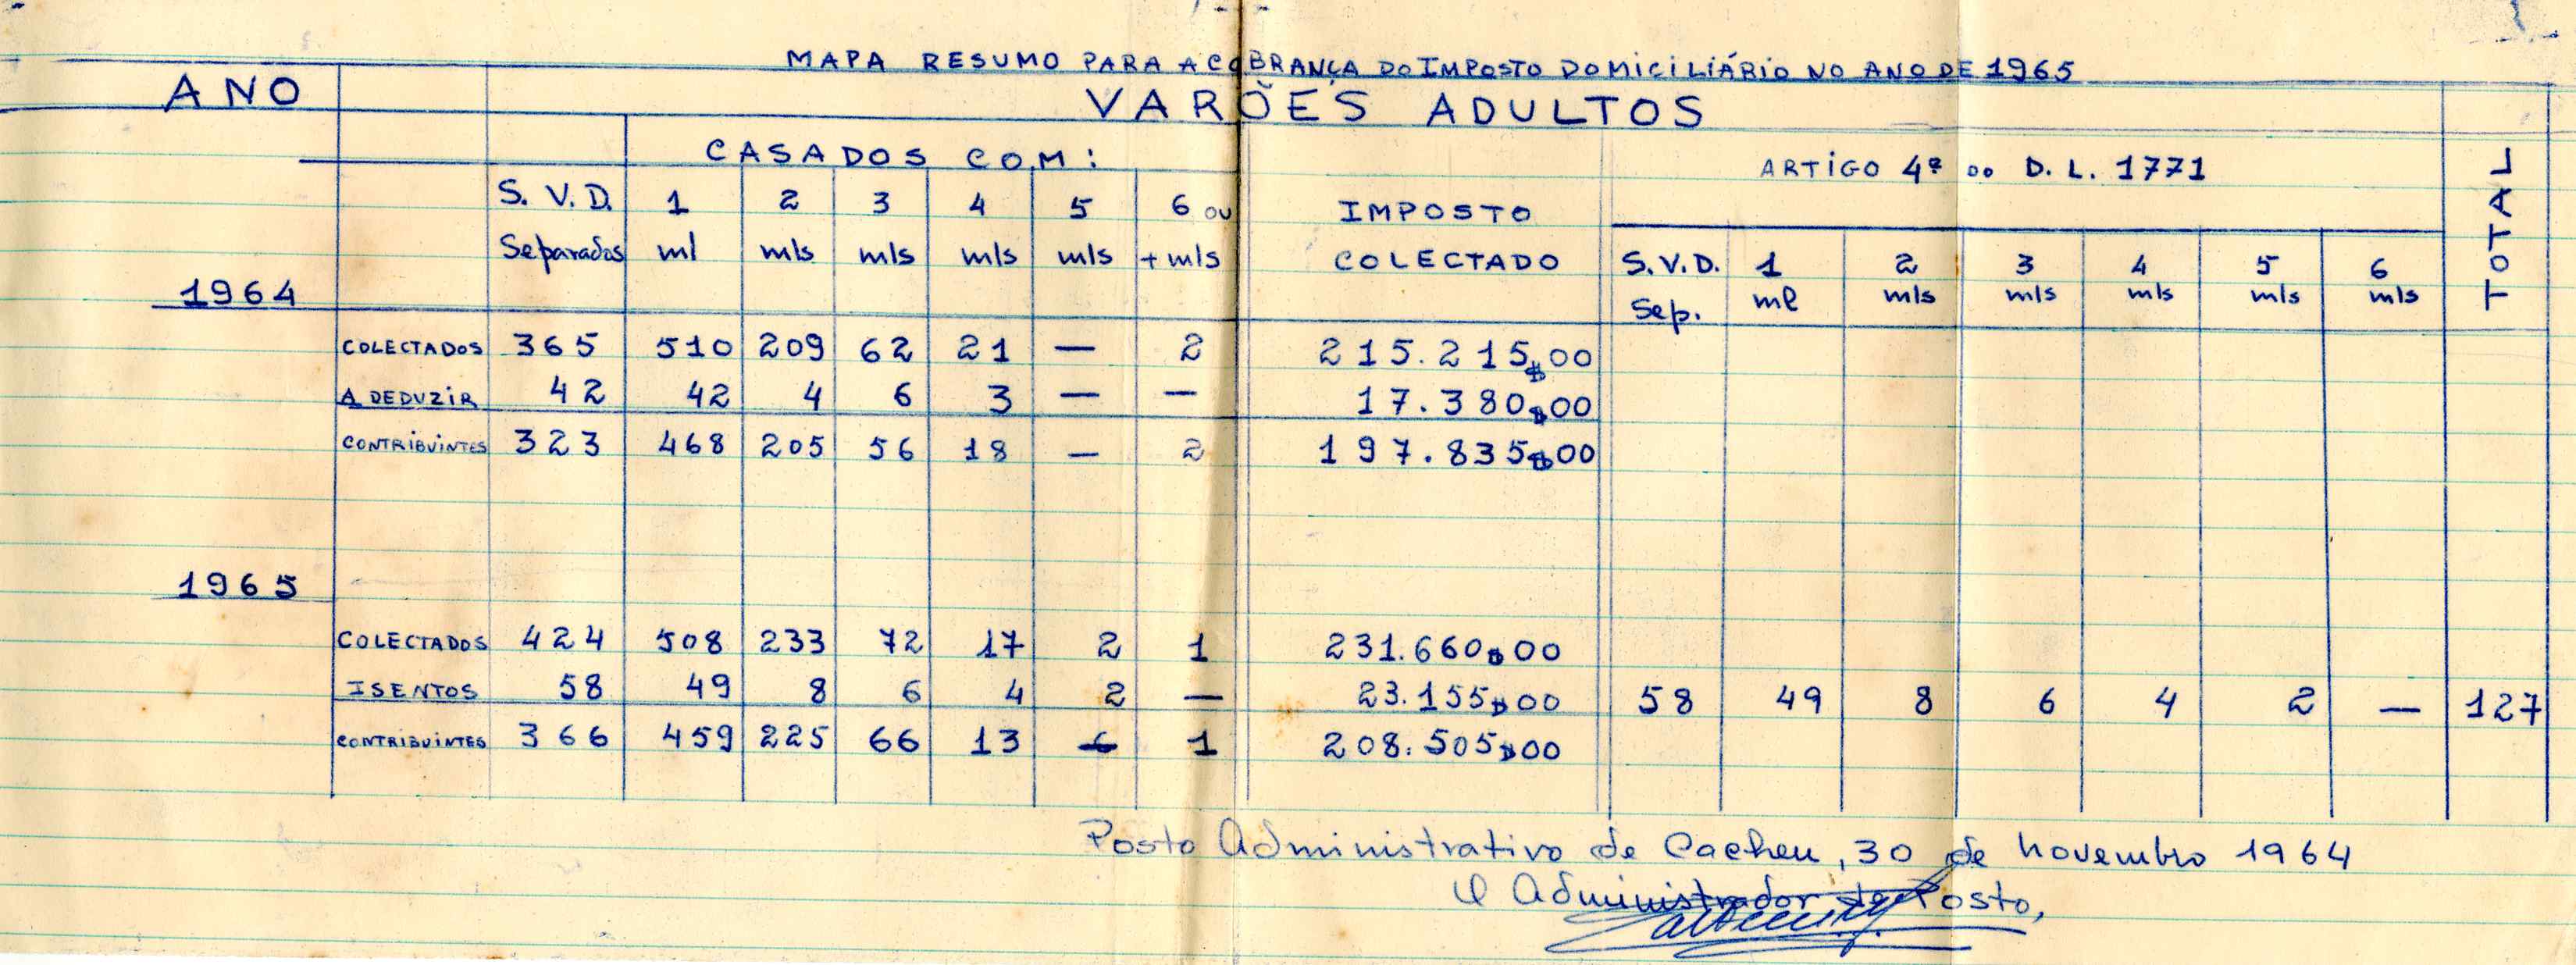 MAPA RESUMO PARA A COBRANÇA DO IMPOSTO DOMICILIÁRIO NO ANO DE 1965
ANO VARÕES ADULTOS
CASADOS COM: ARTIGO 4º DO D. L. 1771 TOTAL
S. V. D. 1 2 3 4 5 6 ou IMPOSTO
Separados ml mls mls mls mls + mls COLECTADO S.V.D. 1 2 3 4 5 6
Sep. ml mls mls mls mls mls
1964
COLECTADOS 365 510 209 62 21 — 2 215.215$00
A DEDUZIR 42 42 4 6 3 — — 17.380$00
CONTRIBUINTES 323 468 205 56 18 — 2 197.835$00
1965
COLECTADOS 424 508 233 72 17 2 1 231.660$00
ISENTOS 58 49 8 6 4 2 — 23.155$00 58 49 8 6 4 2 — 127
CONTRIBUINTES 366 459 225 66 13 — 1 208.505$00
Posto Administrativo de Cacheu, 30 de novembro 1964
O Administrador de Posto,